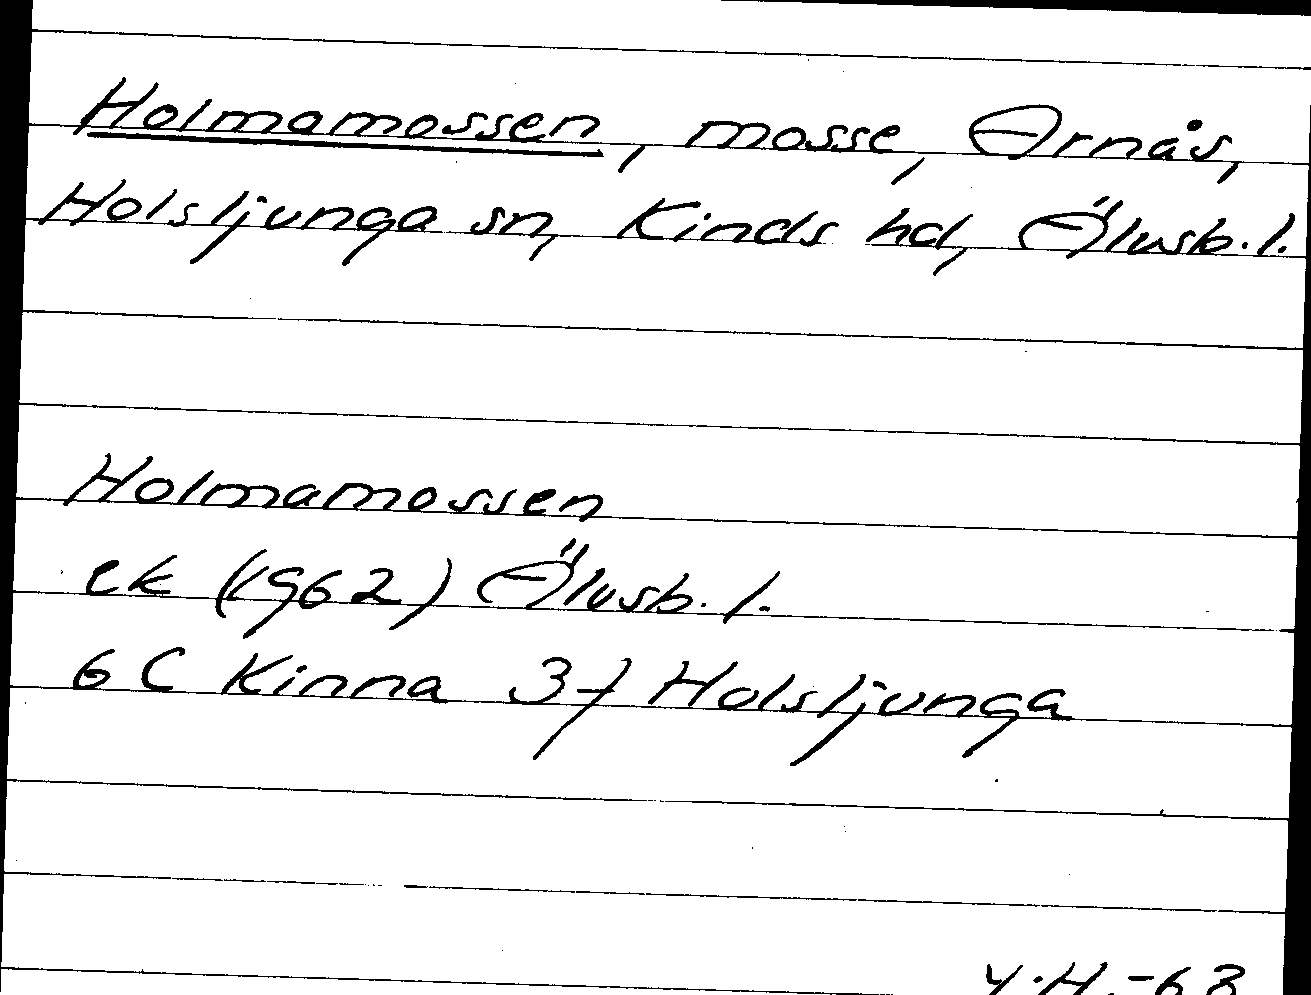 Holmamossen, mosse, Arnås,
Holsljunga sn, Kinds hd, Älvsb. l.
Holmamossen
ek (1962) Älvsb. l.
6 C Kinna 3f Holsljunga